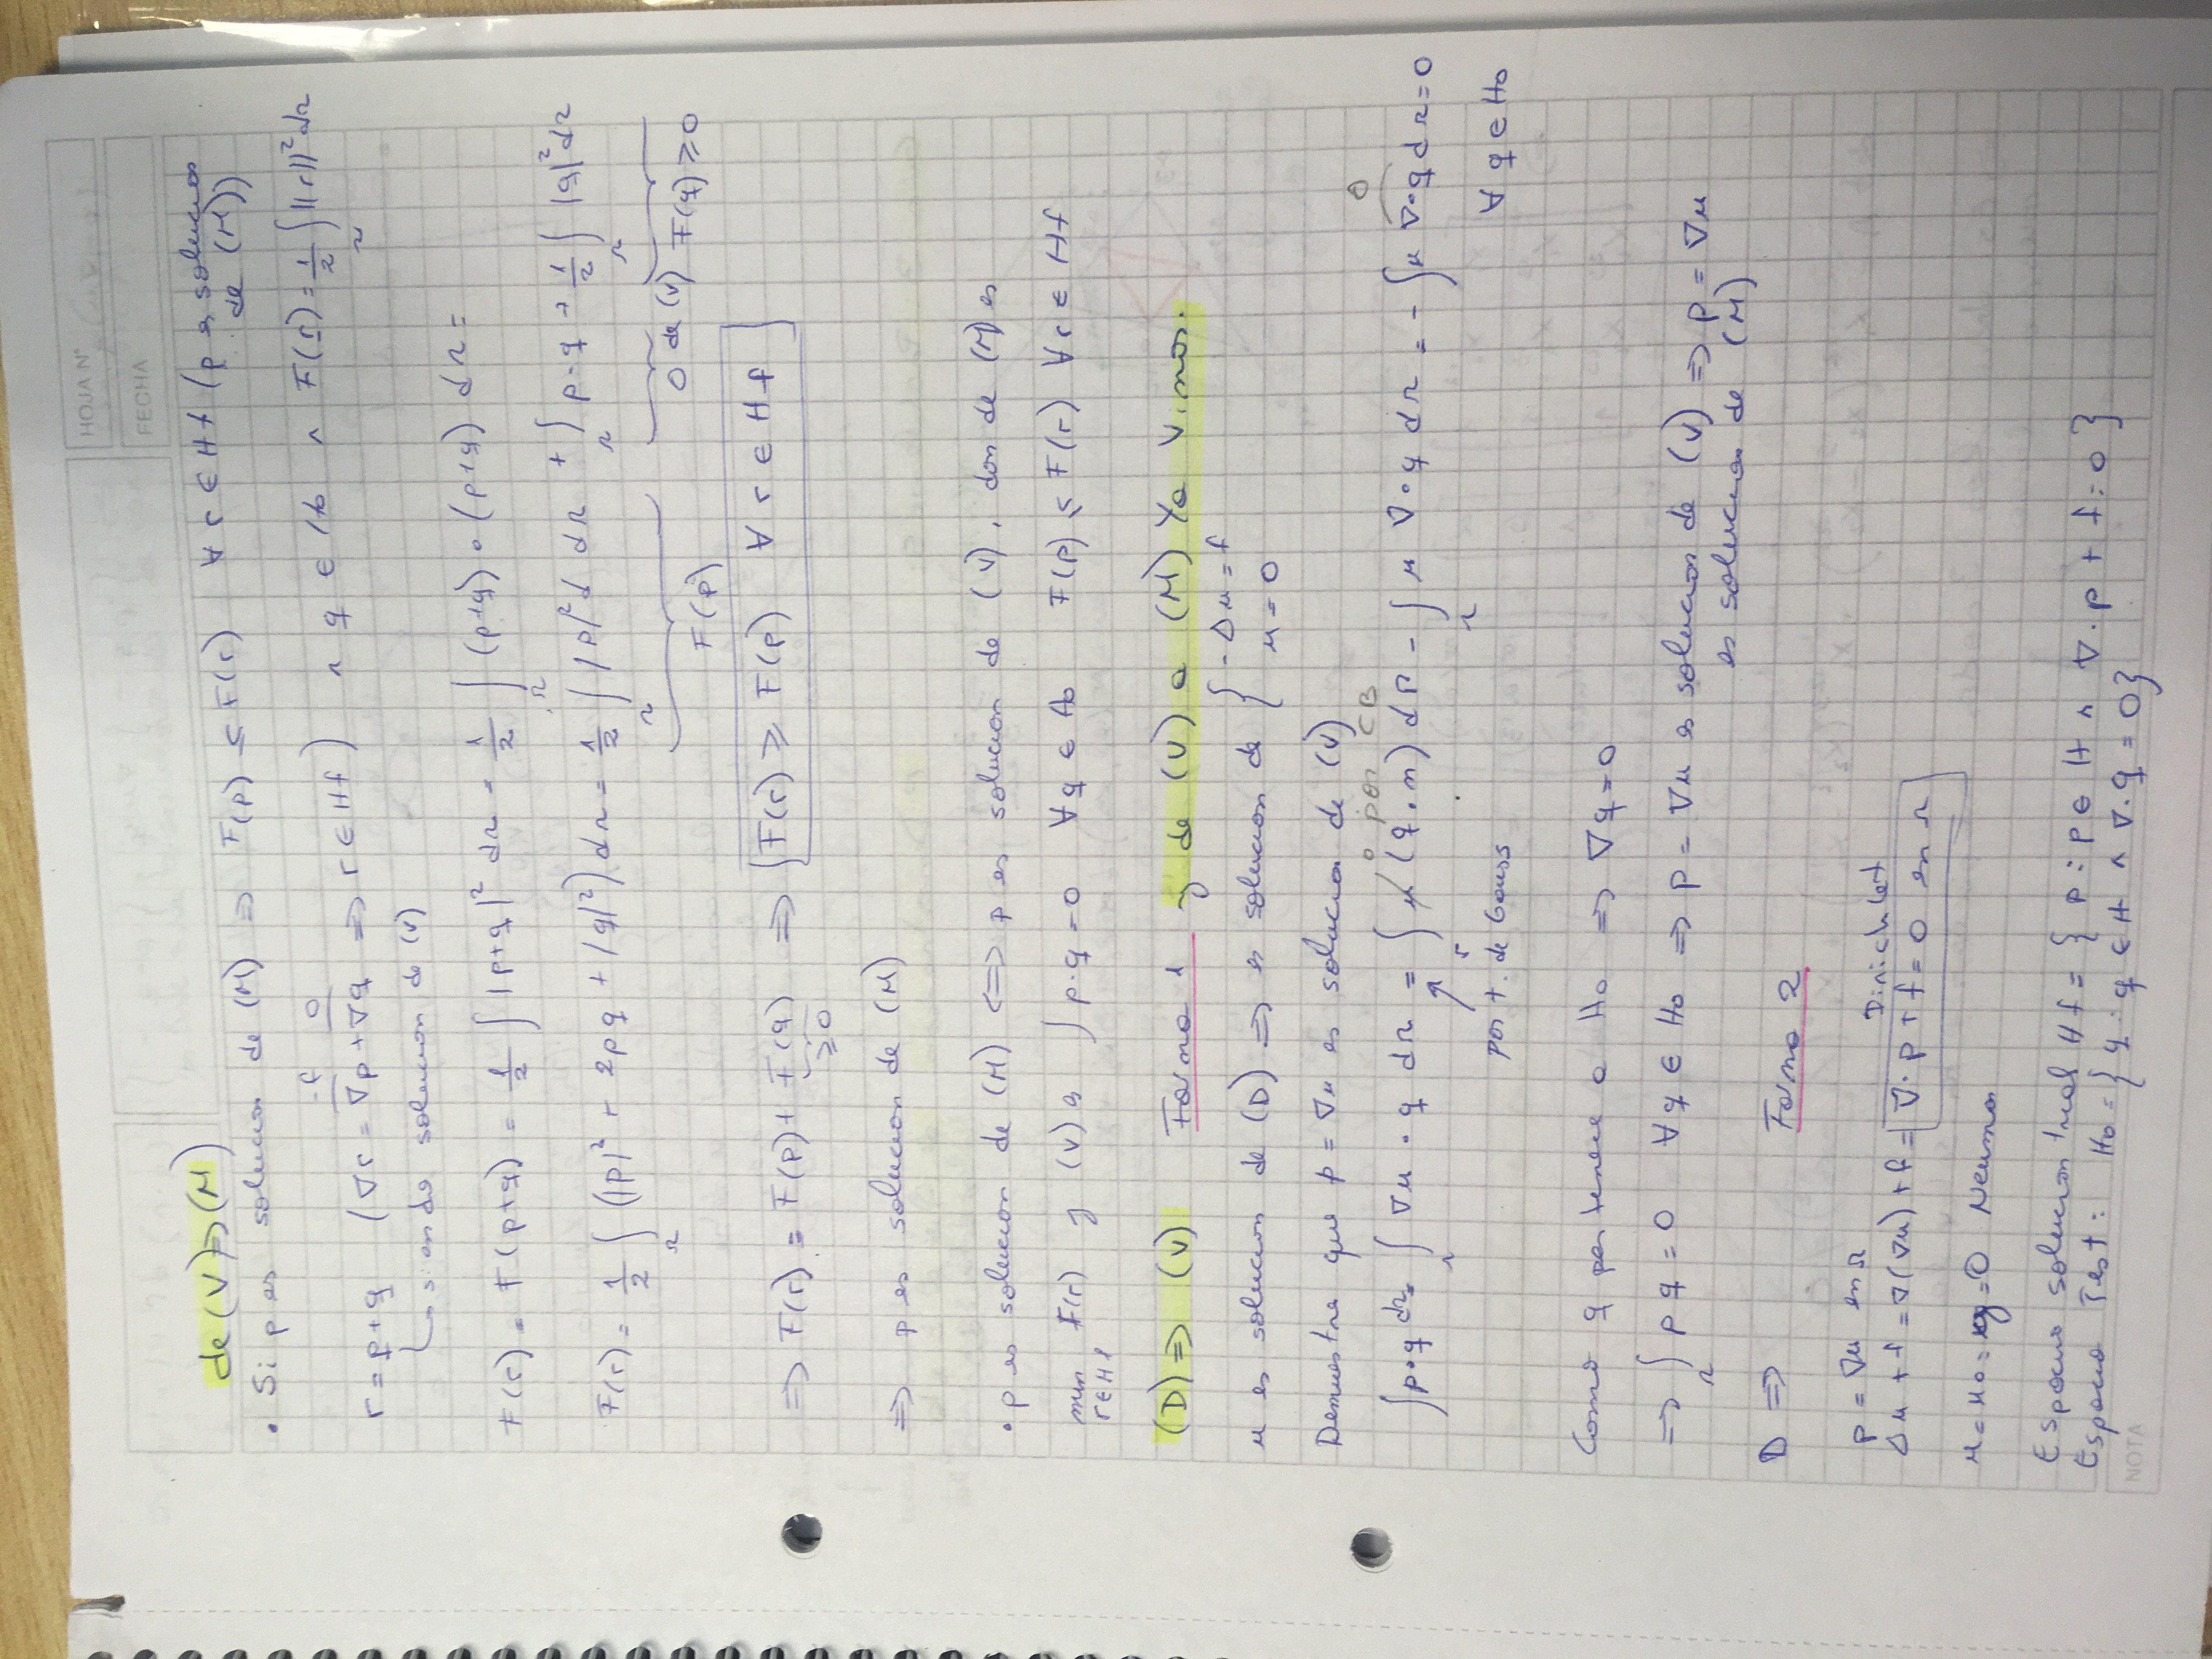 HOJA N°
FECHA
de (V) ⇒ (M)
• Si p es solucion de (M) ⇒ F(p) ≤ F(r) ∀ r ∈ Hf (p es solucion de (M))
-f 0
r = p+q (∇r = ∇p + ∇q ⇒ r ∈ Hf) ∧ q ∈ Ho ∧ F(r) = 1/2 ∫Ω ||r||² dΩ
↳ siendo solucion de (V)
F(r) = F(p+q) = 1/2 ∫ |p+q|² dΩ = 1/2 ∫Ω (p+q) • (p+q) dΩ =
F(r) = 1/2 ∫Ω (|p|² + 2pq + |q|²) dΩ = 1/2 ∫Ω |p|² d dΩ + ∫Ω p·q + 1/2 ∫Ω |q|² dΩ
F(p) 0 de (V) F(q) ≥ 0
⇒ F(r) = F(p) + F(q) ⇒ F(r) ≥ F(p) ∀ r ∈ Hf
≥ 0
⇒ p es solucion de (M)
• p es solucion de (M) ⇔ p es solucion de (V), don de (M) es
min F(r) y (V) es ∫ p·q = 0 ∀q ∈ Ho F(p) ≤ F(r) ∀r ∈ Hf
r∈Hf
(D) ⇒ (V) Forma 1 y de (V) a (M) Ya Vimos.
u es solucion de (D) ⇒ es solucion de { -Δu = f
u = 0
Demuestra que p = ∇u es solucion de (V)
0 por CB 0
∫p•q dΩ = ∫Ω ∇u • q dΩ = ∫Γ u (q•n) dΓ - ∫Ω u ∇•q dΩ = - ∫u ∇•q dΩ = 0
por t. de Gauss ∀ q ∈ Ho
Como q pertenece a Ho ⇒ ∇q = 0
⇒ ∫Ω p q = 0 ∀q ∈ Ho ⇒ p = ∇u es solucion de (V) ⇒ p = ∇u
es solucion de (M)
D ⇒ Forma 2
p = ∇u en Ω
Dirichlet
Δu + f = ∇(∇u) + f = ∇·p + f = 0 en Ω
u = uo = g = 0 Neuman
Espacio solucion trial Hf = { p : p ∈ H ∧ ∇·p + f = 0 }
Espacio Test : Ho = { q : q ∈ H ∧ ∇·q = 0 }
NOTA